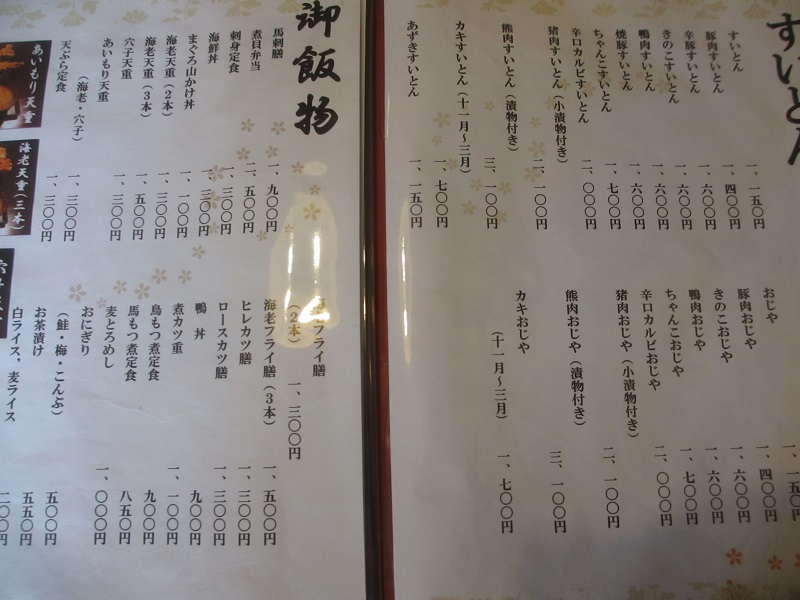 すいとん
すいとん 一、一五〇円
豚肉すいとん 一、四〇〇円
辛豚すいとん 一、六〇〇円
きのこすいとん 一、六〇〇円
鴨肉すいとん 一、六〇〇円
焼豚すいとん 一、七〇〇円
ちゃんこすいとん 一、七〇〇円
辛口カルビすいとん 二、〇〇〇円
猪肉すいとん（小漬物付き） 二、一〇〇円
熊肉すいとん（漬物付き） 三、一〇〇円
カキすいとん（十一月～三月） 一、七〇〇円
あずきすいとん 一、一五〇円
おじや 一、一五〇円
豚肉おじや 一、四〇〇円
きのこおじや 一、六〇〇円
鴨肉おじや 一、六〇〇円
ちゃんこおじや 一、七〇〇円
辛口カルビおじや 二、〇〇〇円
猪肉おじや（小漬物付き） 二、一〇〇円
熊肉おじや（漬物付き） 三、一〇〇円
カキおじや
（十一月～三月） 一、七〇〇円
御飯物
馬刺膳 一、九〇〇円
煮貝弁当 二、五〇〇円
刺身定食 一、三〇〇円
海鮮丼 一、三〇〇円
まぐろ山かけ丼 一、一〇〇円
海老天重（２本） 一、三〇〇円
海老天重（３本） 一、五〇〇円
穴子天重 一、三〇〇円
あいもり天重
（海老・穴子） 一、三〇〇円
天ぷら定食 一、三〇〇円
フライ膳
（２本） 一、三〇〇円
海老フライ膳（３本） 一、五〇〇円
ヒレカツ膳 一、三〇〇円
ロースカツ膳 一、三〇〇円
鴨丼 九〇〇円
煮カツ重 一、一〇〇円
鳥もつ煮定食 九〇〇円
馬もつ煮定食 八五〇円
麦とろめし 一、〇〇〇円
おにぎり
（鮭・梅・こんぶ） 五〇〇円
お茶漬け 五五〇円
白ライス，麦ライス 二〇〇円
あいもり天重
海老天重（三本）